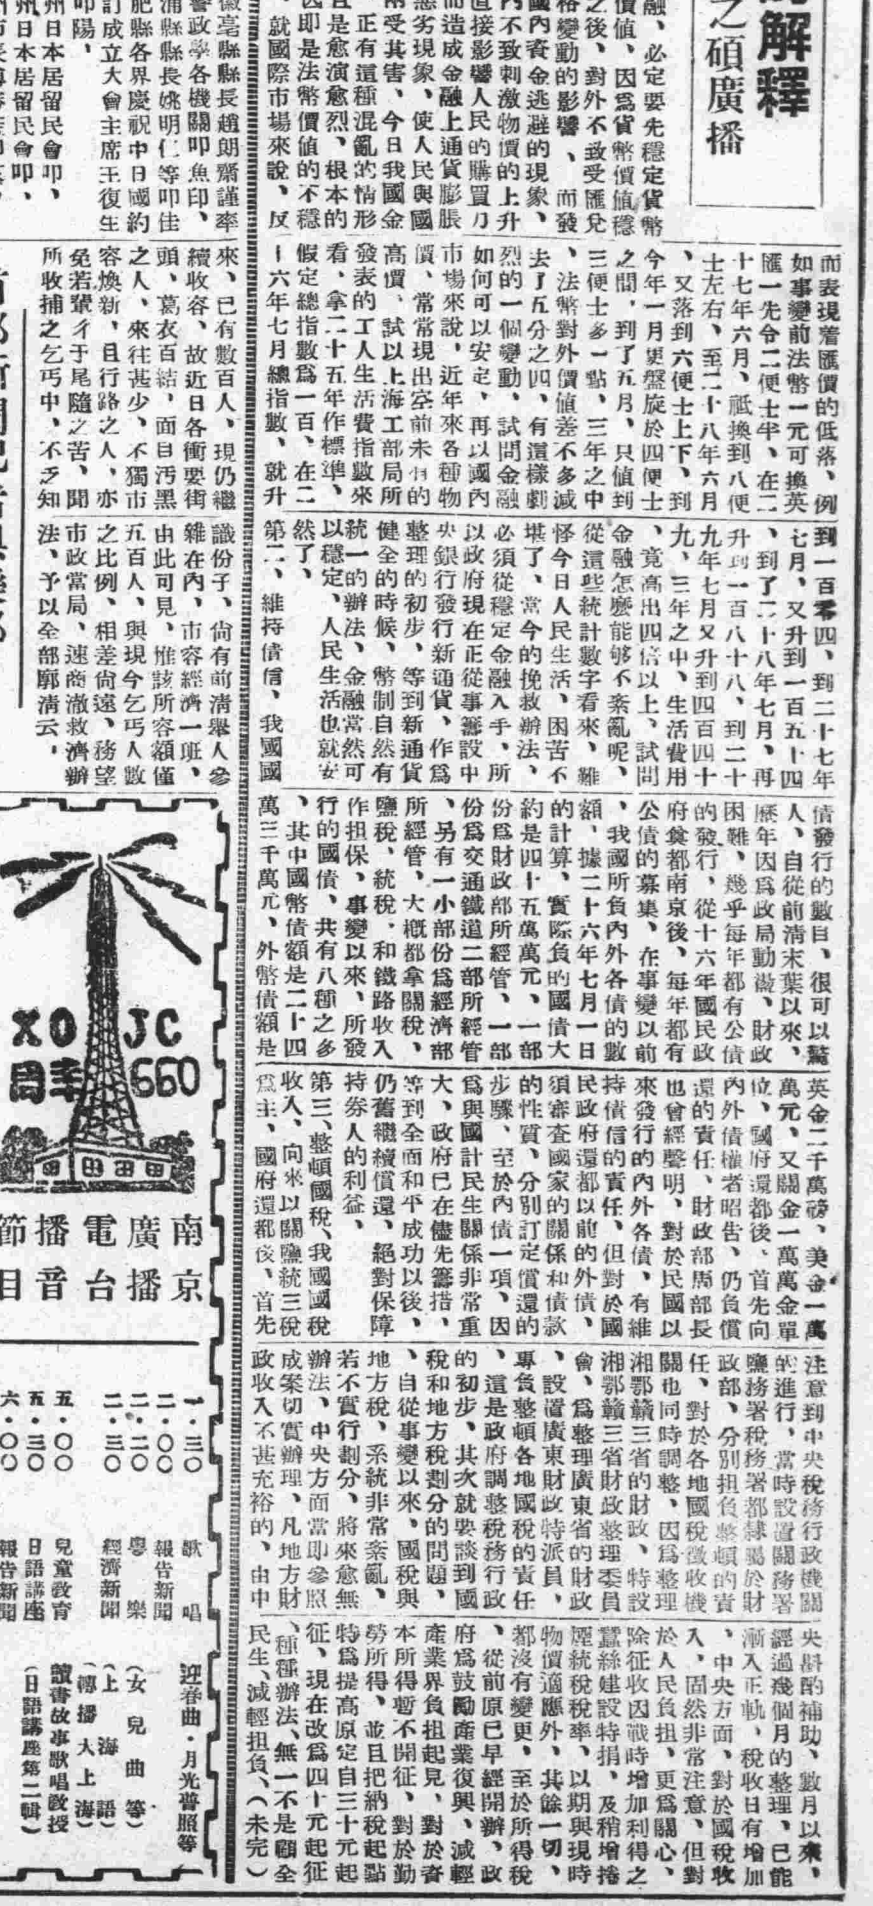 解釋
之碩廣播
融、必定要先穩定貨幣
價值、因爲貨幣價值穩
之後、對外不致受匯兌
格變動的影響、而發
國內資金逃避的現象、
內不致刺激物價的上升
直接影響人民的購買力
而造成金融上通貨膨脹
惡劣現象、使人民與國
兩受其害、今日我國金
正有這種混亂的情形
且是愈演愈烈、根本的
因即是法幣價值的不穩
就國際市場來說、反
而表現着匯價的低落、例
如事變前法幣一元可換英
匯一先令二便士半、在二
十七年六月、祗換到八便
士左右、至二十八年六月
、又落到六便士上下、到
今年一月更盤旋於四便士
之間、到了五月、只値到
三便士多一點、三年之中
、法幣對外價値差不多減
去了五分之四、有這樣劇
烈的一個變動、試問金融
如何可以安定、再以國內
市場來說、近年來各種物
價、常常現出空前未有的
高價、試以上海工部局所
發表的工人生活費指數來
看、拿二十五年作標準、
假定總指數爲一百、在二
十六年七月總指數、就升
到一百零四、到二十七年
七月、又升到一百五十四
、到了二十八年七月、再
升到一百八十八、到二十
九年七月又升到四百四十
九、三年之中、生活費用
、竟高出四倍以上、試問
金融怎麼能够不紊亂呢、
從這些統計數字看來、難
怪今日人民生活、困苦不
堪了、當今的挽救辦法、
必須從穩定金融入手、所
以政府現在正從事籌設中
央銀行發行新通貨、作爲
整理的初步、等到新通貨
健全的時候、幣制自然有
統一的辦法、金融當然可
以穩定、人民生活也就安
然了、
第二、維持債信、我國國
債發行的數目、很可以驚
人、自從前清末葉以來、
歷年因爲政局動盪、財政
困難、幾乎每年都有公債
的發行、從十六年國民政
府奠都南京後、每年都有
公債的募集、在事變以前
、我國所負內外各債的數
額、據二十六年七月一日
的計算、實際負的國債大
約是四十五萬萬元、一部
份爲財政部所經管、一部
份爲交通鐵道二部所經管
、另有一小部份爲經濟部
所經管、大槪都拿關稅、
鹽稅、統稅、和鐵路收入
作担保、事變以來、所發
行的國債、共有八種之多
、其中國幣債額是二十四
萬三千萬元、外幣債額是
英金二千萬磅、美金一萬
萬元、又關金一萬萬金單
位、國府還都後、首先向
內外債權者昭告、仍負償
還的責任、財政部周部長
也曾經聲明、對於民國以
來發行的內外各債、有維
持債信的責任、但對於國
民政府還都以前的外債、
須審查國家的關係和債款
的性質、分別訂定償還的
步驟、至於內債一項、因
爲與國計民生關係非常重
大、政府已在儘先籌措、
等到全面和平成功以後、
仍舊繼續償還、絕對保障
持券人的利益、
第三、整頓國稅、我國國稅
收入、向來以關鹽統三稅
爲主、國府還都後、首先
注意到中央稅務行政機關
的進行、當時設置關務署
鹽務署稅務署都隸屬於財
政部、分別担負整頓的責
任、對於各地國稅徵收機
關也同時調整、因爲整理
湘鄂贛三省的財政、特設
湘鄂贛三省財政整理委員
會、爲整理廣東省的財政
、設置廣東財政特派員、
專負整頓各地國稅的責任
、這是政府調整稅務行政
的初步、其次就要談到國
稅和地方稅劃分的問題、
、自從事變以來、國稅與
地方稅、系統非常紊亂、
若不實行劃分、將來愈無
辦法、中央方面當即參照
成案切實辦理、凡地方財
政收入不甚充裕的、由中
央斟酌補助、數月以來、
經過幾個月的整理、已能
漸入正軌、稅收日有增加
、中央方面、對於國稅收
入、固然非常注意、但對
於人民負担、更爲關心、
除征收因戰時增加利得之
蠶絲建設特捐、及稍增捲
煙統稅稅率、以期與現時
物價適應外、其餘一切、
都沒有變更、至於所得稅
、從前原已早經開辦、政
府爲鼓勵產業復興、減輕
產業界負担起見、對於資
本所得暫不開征、對於勤
勞所得、並且把納稅起點
特爲提高原定自三十元起
征、現在改爲四十元起征
、種種辦法、無一不是顧全
民生、減輕担負、（未完）
徽亳縣縣長趙朗齋謹率
警政學各機關叩魚印、
浦縣縣長姚明仁等叩佳
肥縣各界慶祝中日國約
訂成立大會主席王復生
叩陽、
州日本居留民會叩、
州日本居留民會叩、
來、已有數百人、現仍繼
續收容、故近日各衝要街
頭、葛衣百結、面目汚黑
之人、來往甚少、不獨市
容煥新、且行路之人、亦
免若輩孑于尾隨之苦、聞
所收捕之乞丐中、不乏知
識份子、尙有前清舉人參
雜在內、市容經濟一班、
由此可見、惟該所容額僅
五百人、與現今乞丐人數
之比例、相差尙遠、務望
市政當局、速商澈救濟辦
法、予以全部廓清云、
XOJC
周率 660
南京
廣播
電台
播音
節目
一・三〇 歌唱 迎春曲・月光普照等
二・〇〇 報告新聞
二・二〇 粵樂 （女兒曲等）
二・三〇 經濟新聞 （上海語）
（轉播大上海）
五・〇〇 兒童敎育 讀書故事歌唱敎授
五・三〇 日語講座 （日語講座第二輯）
六・〇〇 報告新聞